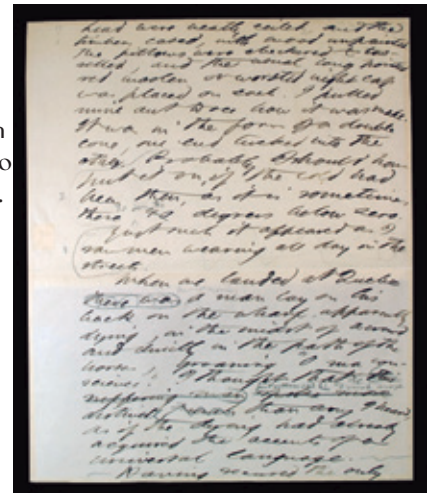 head were neatly ceiled, and the
timbers cased, with wood unpainted
the pillows were checkered & tas-
selled, and the usual long pointed
red woolen or worsted night cap
was placed on each. I pulled
mine out to see how it was made.
It was in the form of a double
cone, one end tucked into the
other. Probably I should have
put it on, if the cold had
been then, as it is sometimes
there, degrees below zero.
it appeared as I
men wearing all day in the
streets.
When we landed at Quebec
there was a man lay on his
back on the wharf, apparently
dying, in the midst of a crowd
and directly in the path of the
horses, groaning "O ma con-
science!" I thought that
more
distinctly than any I heard,
as if the dying had already
acquired the accents of a
universal language.
Having secured the only
n
o
.